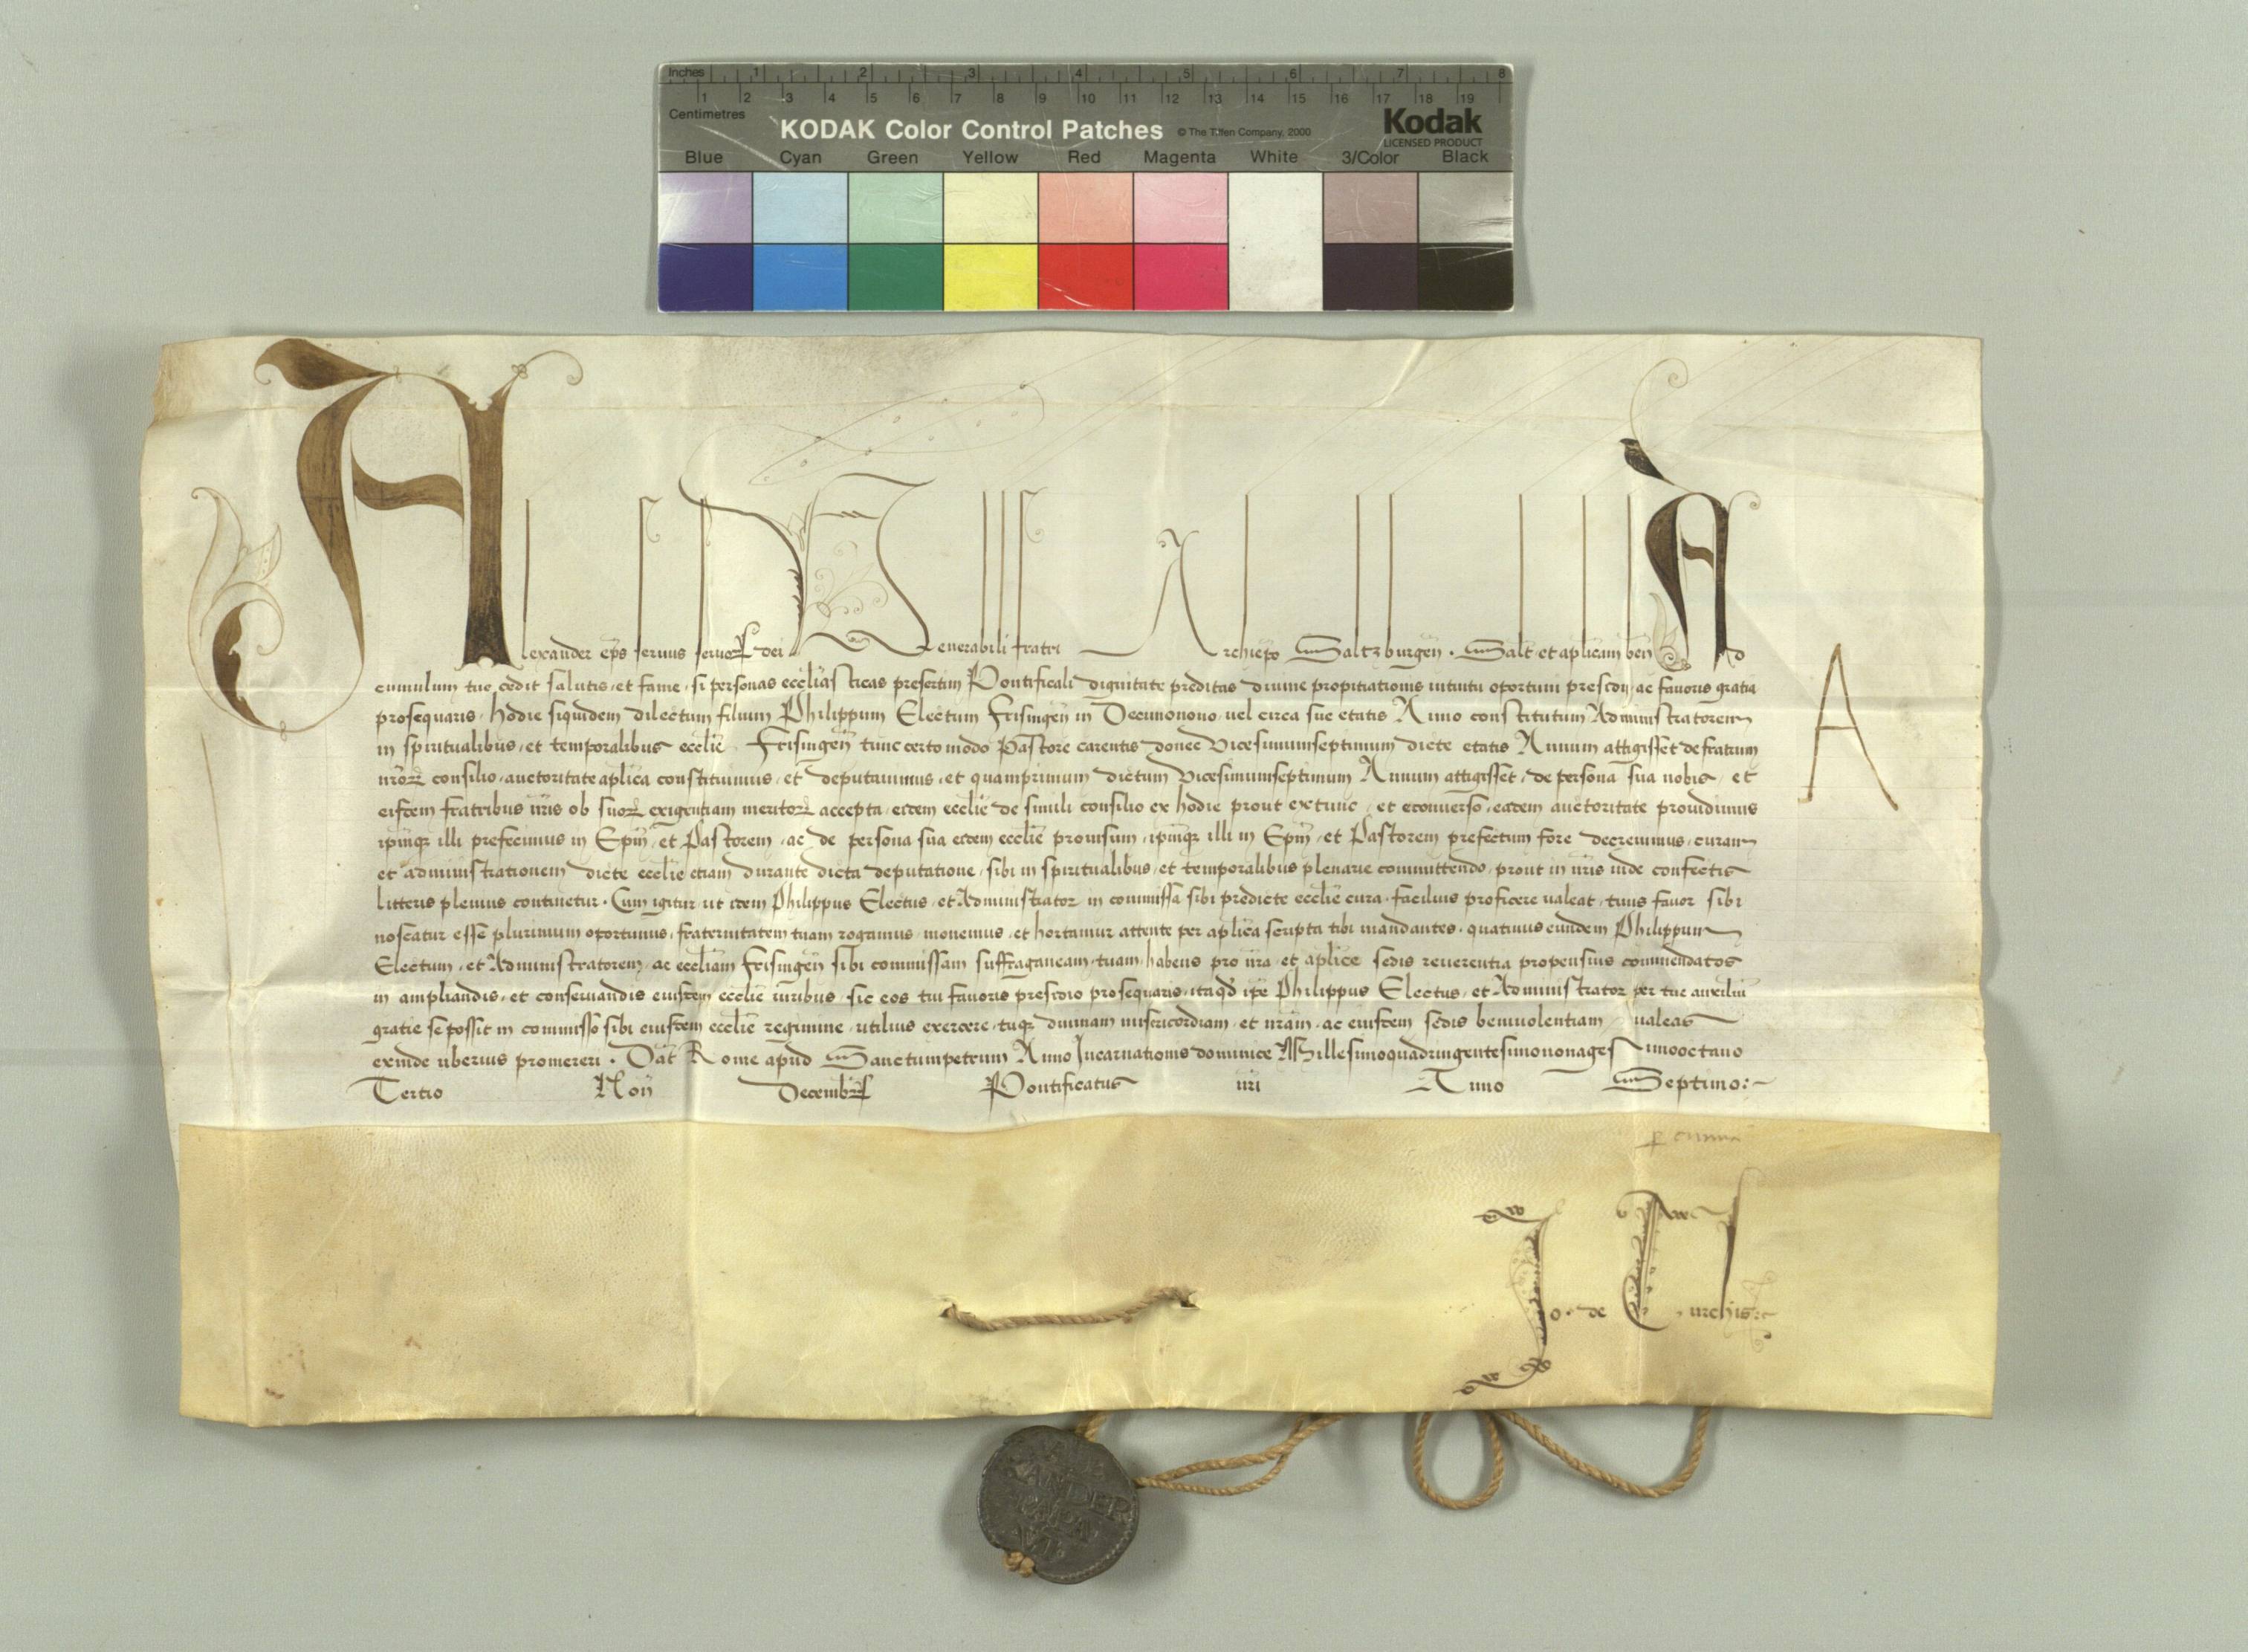 Inches 1 2 3 4 5 6 7 8
1 2 3 4 5 6 7 8 9 10 11 12 13 14 15 16 17 18 19
Centimetres
KODAK Color Control Patches © The Tiffen Company, 2000 Kodak
LICENSED PRODUCT
Blue Cyan Green Yellow Red Magenta White 3/Color Black
Alexander ep̄s seruus seruoꝝ dei Venerabili fratri Archiep̄o Saltzburgen̄ . Salt̄ et ap̄licam ben̄ Ad
cumulum tue cedit salutis et fame si personas eccl̄iasticas presertim Pontificali dignitate preditas diuine propitiationis intuitu oportuni presidij ac fauoris gratia
prosequaris . hodie siquidem dilectum filium Philippum Electum Frisingen̄ in Decimonono uel circa sue etatis Anno constitutum Administratorem
in spiritualibus et temporalibus eccl̄ie Frisingen̄ tunc certo modo Pastore carentis donec Vicesimumseptimum dicte etatis Annum attigisset de fratrum
nr̄oꝝ consilio auctoritate ap̄lica constituimus et deputauimus et quamprimum dictum Vicesimumseptimum Annum attigisset de persona sua nobis et
eisdem fratribus nr̄is ob suoꝝ exigentiam meritoꝝ accepta eidem eccl̄ie de simili consilio ex hodie prout extunc et econuerso eadem auctoritate prouidimus
ip̄mqꝫ illi prefecimus in Ep̄m et Pastorem ac de persona sua eidem eccl̄ie prouisum ip̄mqꝫ illi in Ep̄m et Pastorem prefectum fore decreuimus curam
et administrationem dicte eccl̄ie etiam durante dicta deputatione sibi in spiritualibus et temporalibus plenarie committendo prout in nr̄is inde confectis
litteris plenius continetur . Cum igitur ut idem Philippus Electus et Administrator in commissa sibi predicte eccl̄ie cura facilius proficere ualeat tuus fauor sibi
noscatur esse plurimum oportunus fraternitatem tuam rogamus monemus et hortamur attente per ap̄lica scripta tibi mandantes quatinus eundem Philippum
Electum et Administratorem ac eccl̄iam Frisingen̄ sibi commissam suffraganeam tuam habens pro nr̄a et ap̄lice sedis reuerentia propensius commendatos
in ampliandis et conseruandis eiusdem eccl̄ie iuribus sic eos tui fauoris presidio prosequaris itaqd̄ ip̄e Philippus Electus et Administrator per tue auxiliū
gratie se possit in commisso sibi eiusdem eccl̄ie regimine utilius exercere tuqꝫ diuinam misericordiam et nr̄am ac eiusdem sedis beniuolentiam ualeas
exinde uberius promereri . Dat̄ Rome apud Sanctumpetrum Anno Incarnationis dominice Millesimoquadringentesimononagesimooctauo
Tertio Non̄ Decembrꝭ Pontificatus nr̄i Anno Septimo:~
A
Jo. de Curchis:
ALEX
ANDER
PAPA
VI